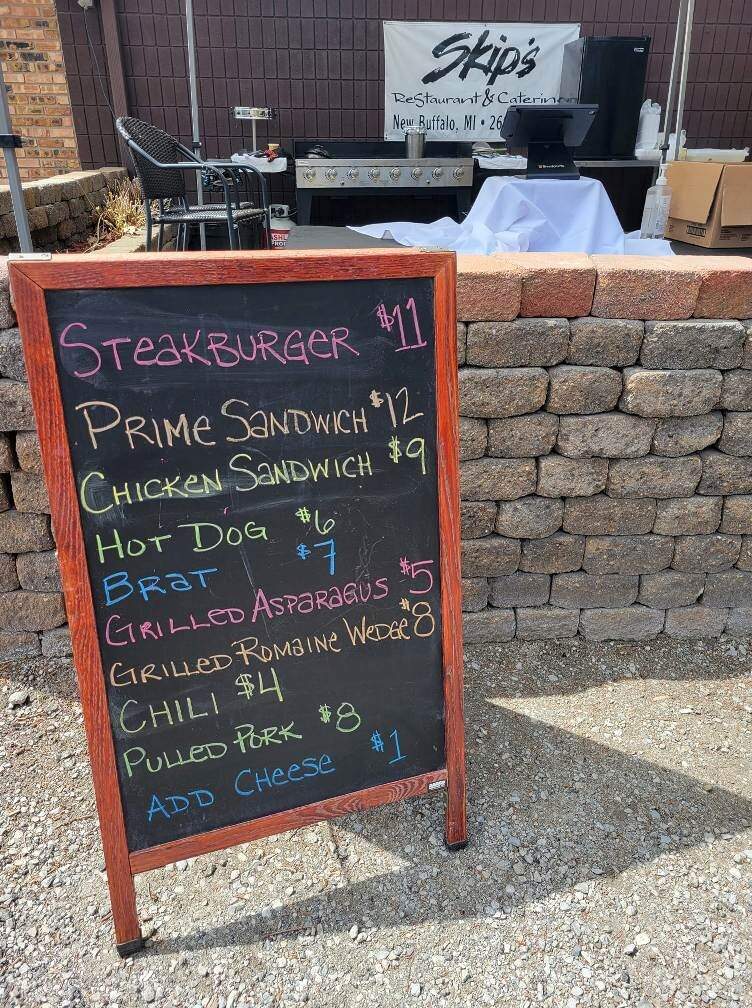 Skip's
Restaurant & Catering
New Buffalo, MI • 26
STeaKBURGER $11
PRIMe SaNDWICH $12
CHICKeN SaNDWICH $9
HOT DOG $6
BRaT $7
GRILLeD ASPaRaGUS $5
GRILLeD ROMaINe WeDGe $8
CHILI $4
PULLeD PORK $8
ADD CHeeSe $1